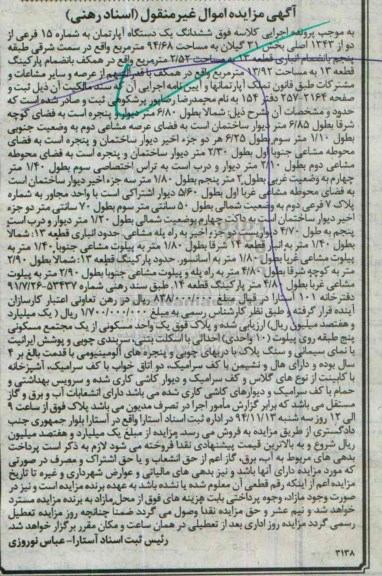 آگهی مزایده اموال غیر منقول (اسناد رهنی)
به موجب پرونده اجرایی کلاسه فوق ششدانگ یک دستگاه آپارتمان به شماره ۱۵ فرعی از
دو از ۱۳۴۳ اصلی بخش ۳۱ گیلان به مساحت ۹۴/۶۸ مترمربع واقع در سمت شرقی طبقه
پنجم بانضمام انباری قطعه ۱۳ به مساحت ۲/۵۲ مترمربع واقع در همکف بانضمام پارکینگ
قطعه ۱۳ به مساحت ۱۳/۹۲ مترمربع واقع در همکف با قدرالسهم از عرصه و سایر مشاعات و
مشترکات طبق قانون تملک آپارتمانها و آیین نامه اجرایی آن که سند مالکیت آن ذیل ثبت و
صفحه ۲۱۶۴-۲۵۷ دفتر ۱۵۴ به نام محمدرضا رضاپور پرشکوهی ثبت و صادر شده است که
حدود و مشخصات آن بشرح ذیل: شمالا بطول ۶/۸۰ متر دیوار و پنجره است به فضای کوچه
شرقا بطول ۶/۸۵ متر دیوار ساختمان است به فضای عرصه مشاعی دوم به وضعیت جنوبی
بطول ۱/۱۰ متر سوم بطول ۶/۲۵ متر هر دو جزء اخیر دیوار ساختمان و پنجره است به فضای
محوطه مشاعی جنوبا اول بطول ۲/۳۰ متر دیوار ساختمان و پنجره است به فضای محوطه
مشاعی دوم بطول ۲/۱۰ متر دیوار و درب است به تراس اختصاصی سوم بطول ۱/۴۰ متر
چهارم به وضعیت غربی بطول ۲ متر پنجم بطول ۱/۸۰ متر سه جزء اخیر دیوار ساختمان است
به فضای محوطه مشاعی غربا اول بطول ۵/۶۰ دیوار اشتراکی است با واحد مجاور به شماره
پلاک ۷ فرعی دوم به وضعیت شمالی بطول ۵۰ سانتی متر سوم بطول ۷۰ سانتی متر دو جزء
اخیر دیوار ساختمان است به داکت چهارم بوضعیت شمالی بطول ۱/۲۰ متر دیوار و درب است
پنجم به طول ۴/۷۰ دیوار است سه جزء اخیر به راه پله مشاعی. حدود انباری قطعه ۱۳: شمالا
بطول ۱/۴۰ متر به انبار قطعه ۱۴ شرقا بطول ۱/۸۰ متر به پیلوت مشاعی جنوبا ۱/۴۰ متر به
پیلوت مشاعی غربا بطول ۱/۸۰ متر به آسانسور. حدود پارکینگ قطعه ۱۳: شمالا بطول ۲/۹۰
متر به کوچه شرقا بطول ۴/۸۰ متر به راه پله و پیلوت مشاعی جنوبا بطول ۲/۹۰ متر به پیلوت
مشاعی غربا بطول ۴/۸۰ متر پارکینگ قطعه ۱۴. طبق سند رهنی شماره ۵۳۴۳۷-۹۱/۷/۲۶
دفترخانه ۱۰۱ آستارا در قبال مبلغ ۸۳۸/۰۰۰/۰۰۰ ریال در رهن تعاونی اعتبار کارسازان
آینده قرار گرفته و طبق نظر کارشناس رسمی به مبلغ ۱/۷۰۰/۰۰۰/۰۰۰ ریال (یک میلیارد
و هفتصد میلیون ریال) ارزیابی شده و پلاک فوق یک واحد مسکونی از یک مجتمع مسکونی
پنج طبقه روی پیلوت (۱۰ واحدی) احداثی با اسکلت بتنی و سربندی چوبی و پوشش ایرانیت
با نمای سیمانی و سنگ پلاک با دربهای چوبی و پنجره های آلومینیومی با قدمت بالغ بر ۴
سال بوده و دارای هال و نشیمن با کف سرامیک، دو اتاق خواب با کف سرامیک، آشپزخانه
با کابینت از نوع های گلاس و کف سرامیک و دیوار کاشی کاری شده و سرویس بهداشتی و
حمام با کف سرامیک و دیوارهای کاشی کاری شده می باشد دارای انشعابات آب و برق و گاز
مستقل می باشد که برابر گزارش مامور اجرا در تصرف مدیون می باشد پلاک فوق از ساعت ۹
الی ۱۲ روز سه شنبه ۹۴/۱۱/۱۳ در اداره ثبت اسناد آستارا واقع در آستارا بلوار جمهوری جنب
دادگستری از طریق مزایده به فروش می رسد. مزایده از مبلغ یک میلیارد و هفتصد میلیون
ریال شروع و به بالاترین قیمت پیشنهادی نقدا فروخته می شود لازم به ذکر است پرداخت
بدهی های مربوط به آب، برق، گاز اعم از حق انشعاب و یا حق اشتراک و مصرف در صورتی
که مورد مزایده دارای آنها باشد و نیز بدهی های مالیاتی و عوارض شهرداری و غیره تا تاریخ
مزایده اعم از اینکه رقم قطعی آن معلوم شده یا نشده باشد به عهده برنده مزایده است و نیز در
صورت وجود مازاد، وجوه پرداختی بابت هزینه های فوق از محل مازاد به برنده مزایده مسترد
خواهد شد و نیم عشر و حق مزایده نقدا وصول می گردد ضمنا چنانچه روز مزایده تعطیل
رسمی گردد مزایده روز اداری بعد از تعطیلی در همان ساعت و مکان مقرر برگزار خواهد شد.
رئیس ثبت اسناد آستارا- عباس نوروزی
۳۱۳۸